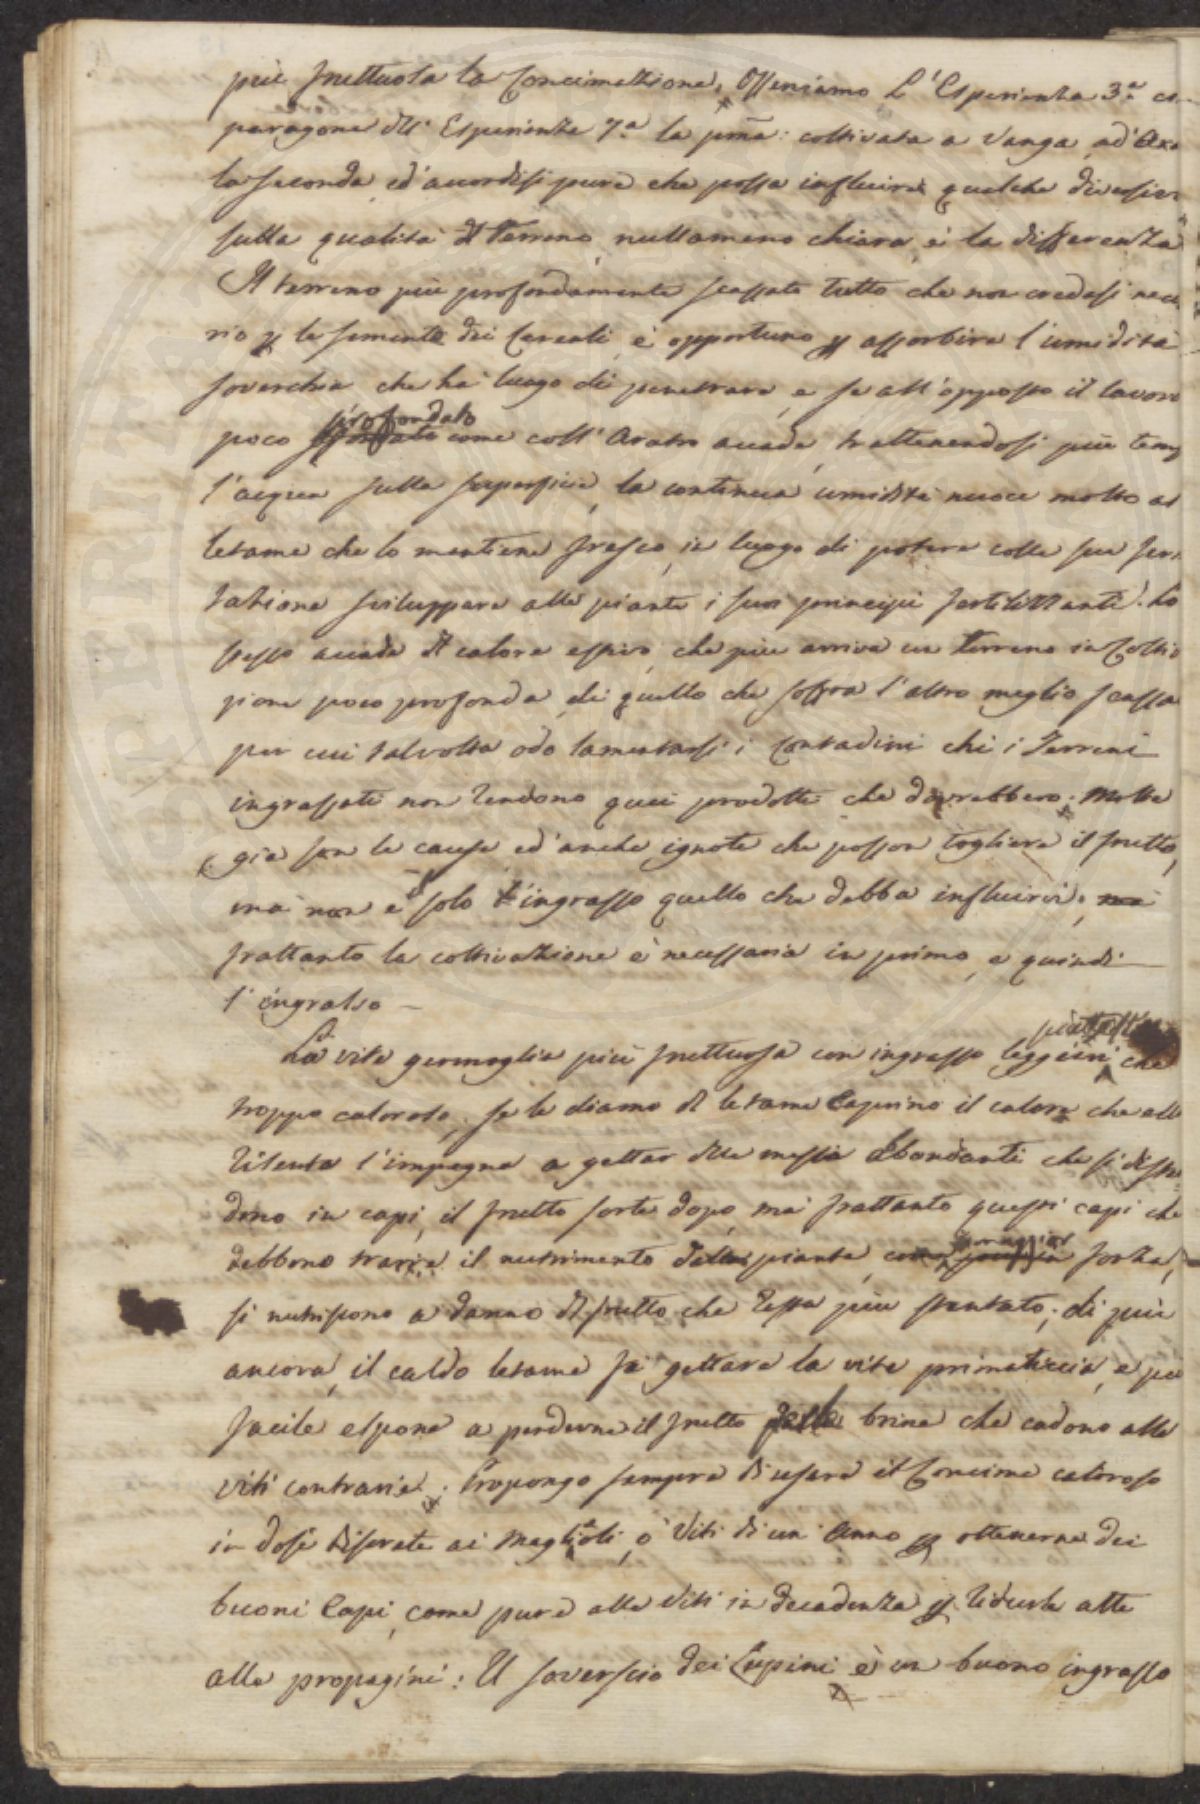 più fruttuosa la Concimazione. Osserviamo L'Esperienza 3.a a
paragone dell' Esperienza 7.a la pma: coltivata a Vanga, ad'
la seconda, ed'accordisi pure che possa influire qualche
sulla qualità del Terreno, nullameno chiara è la differenza
Il terreno più profondamente scassato tutto che non credasi
rio p le semente dei Cereali, è opportuno p assorbire l'umidità
soverchia che ha luogo di penetrare, e se all'opposto il lavoro
profondato
poco come coll'Aratro accade, trattenendosi più
l'acqua sulla superficie, la continua umidità nuoce molto al
letame che lo mantiene fresco, in luogo di potere colla sua
tazione sviluppare alle piante i suoi principii fertilizzanti. Lo
stesso accade del calore estivo, che più arriva un terreno in
zione poco profonda, di quello che soffra l'altro meglio
per cui talvolta odo lamentarsi i Contadini che i Terreni
ingrassati non rendono quei prodotti che dovrebbero. Molte
gia son le cause ed'anche ignote che posson togliere il frutto,
ma non è solo l'ingrasso quello che debba influirvi, ma
frattanto la coltivazione è necessaria in primo, e quindi
l'ingrasso —
piuttosto
La vite germoglia più fruttuosa con ingrasso leggieri che
troppo caloroso. Se le diamo del letame Caprino il calore che
risente l'impegna a gettar delle messia abondanti che si
dono in capi, il frutto sorte dopo, ma frattanto questi capi che
maggior
debbono trarre il nutrimento dalla pianta, con forza,
si nutriscono a danno del frutto che resta più stentato; di più
ancora, il caldo letame fa gettare la vite primaticcia, e più
facile espone a perderne il frutto dalle brine che cadono alle
viti contrarie. Propongo sempre di usare il Concime caloroso
in dose discreta ai Maglioli, o Viti di un' Anno p ottenerne dei
buoni Capi, come pure alle Viti in decadenza p ridurle atte
alle propagini: Il soverscio dei Lupini è un buono ingrasso